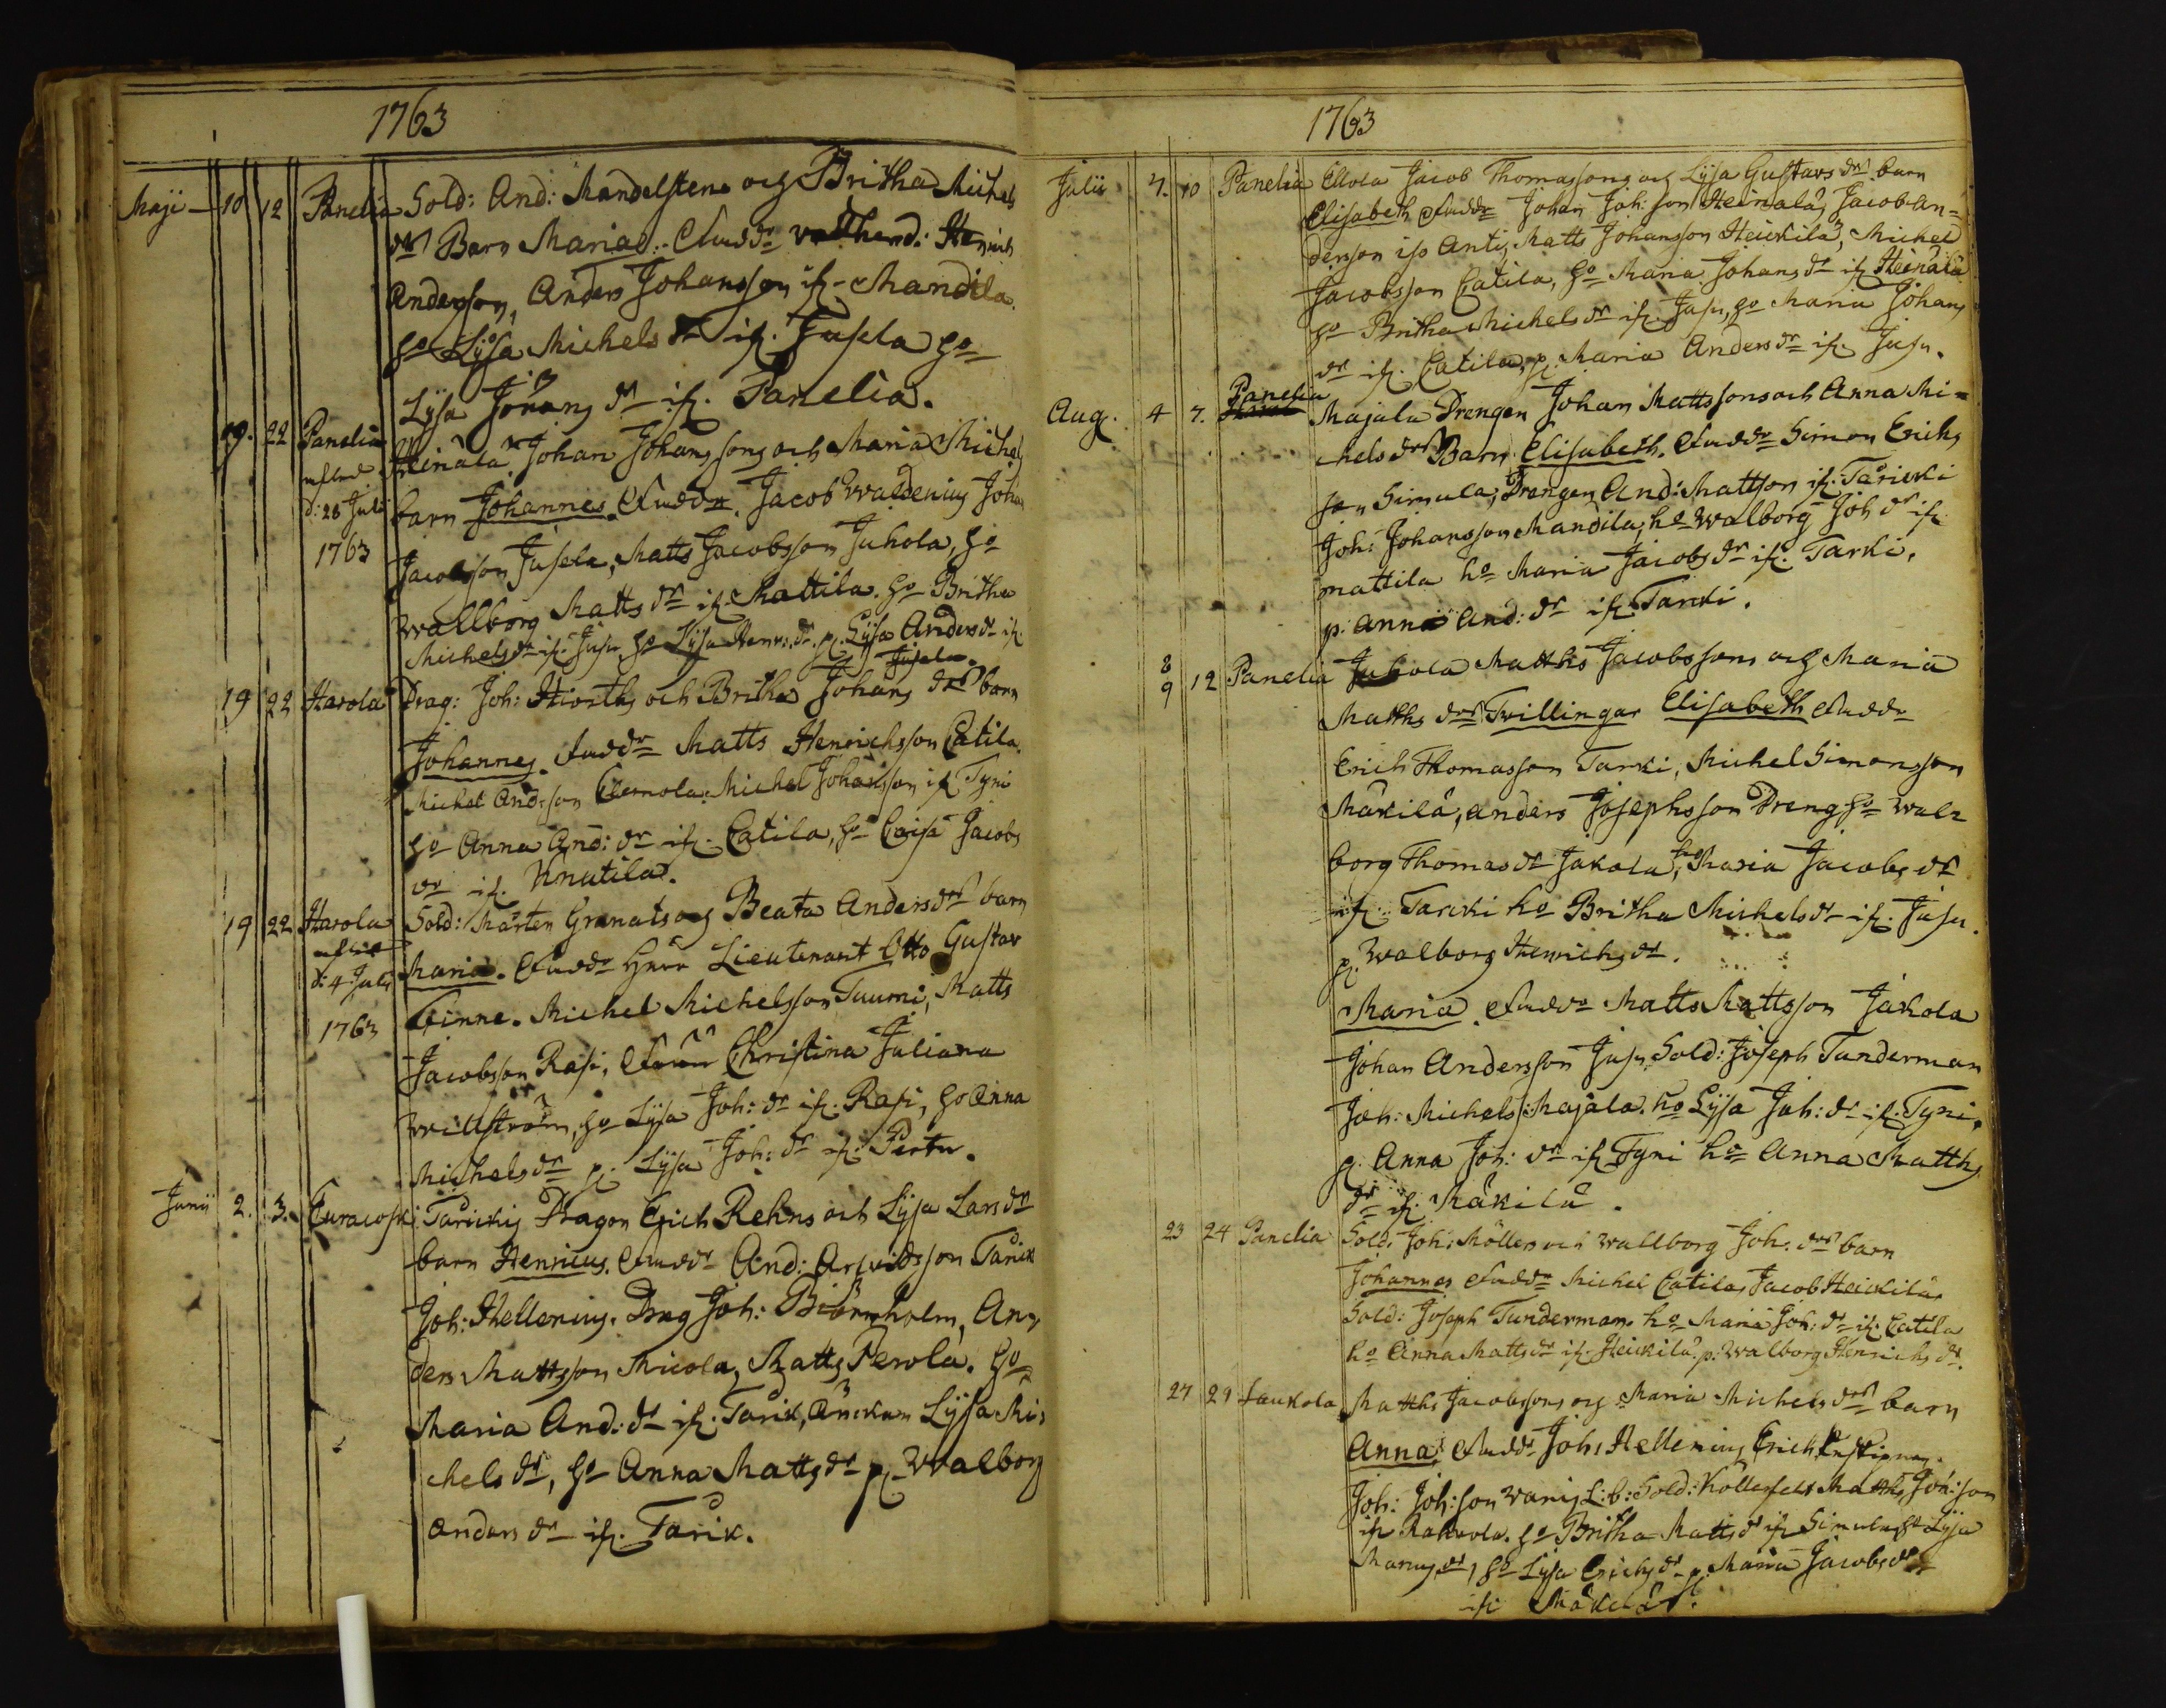 1763
Maji 10 12 Panelia Sold: And: Mandelstens och Britha Michels
dr Barn Maria. Fuddr Henrich
Andersson, Anders Johansson ifr. Mandila.
ho Lysa Michels dr ifr. Jusela ho
Lysa Johans dr ifr. Panelia.
19. 22 Panelia Heinala Johan Johanssons och Maria Michels
d: 28 Juli barn Johannes. Fuddr. Jacob Waldenius Johan
1763 Jacobsson Jusela, Matts Jacobsson Juhola, ho
Wallborg Matts dr ifr. Mattila. ho Britha
Michels dr ifr. Jusu, ho Lysa Henr: dr. p. Lysa Anders dr ifr.
Jusela.
19 22 Harola Drag: Joh: Hiorths och Britha Johans drs barn
Johannes. Fuddr Matts Henrichsson Catila.
Michel And:son Clemola. Michel Johansson ifr. Tyni
ho Anna And: dr ifr. Catila, ho Caisa Jacobs
dr ifr. Knutila.
19 22 Harola Sold: Mårten Granats och Beata Anders drs barn
d: 4 Juli Maria. Fuddr Herr Lieutenant Otto Gustav
1763 Finne. Michel Michelsson Tuumi, Matts
Jacobsson Rasi, Christina Juliana
Willström, ho Lysa Joh: dr ifr. Rasi, ho Anna
Michels dr p. Lysa Joh: dr ifr. Pertu.
Junii 2. 3. Euracoski Tarickis Dragon Erich Rehns och Lysa Lars drs
barn Henricus. Fuddr And: Arfvidsson Tarick
Joh: Hellenius. Drag Joh: Biörnholm, An-
ders Mattsson Micola, Matts Perola. ho
Maria And: dr ifr. Tarik, Änckan Lysa Mi-
chels dr, ho Anna Matts dr p. Walborg
Anders dr ifr. Tarik.
1763
Julii 7. 10 Panelia Ellola Jacob Thomassons och Lysa Gustavs drs barn
Elisabeth Fuddr Johan Joh:son Heinala, Jacob An-
dersson ifr Anti, Matts Johansson Heickilä, Michel
Jacobsson Catila, ho Maria Johans dr ifr. Heinala
ho Britha Michels dr ifr. Jusu, ho Maria Johans
dr ifr. Catila, p. Maria Anders dr ifr. Jusu.
Aug. 4 7. Panelia Majala Drengen Johan Mattssons och Anna Mi-
chels drs Barn Elisabeth. Fuddr Simon Erichs
son Simula, Drengen And: Mattson ifr. Taricki
Joh: Johansson Mandila, ho Walborg Joh dr ifr.
Mattila ho Maria Jacobs dr ifr. Tarki.
p: Anna And: dr ifr. Tarcki.
8
9 12 Panelia Juhola Matths Jacobssons och Maria
Matths drs Tvillingar Elisabeth Fuddr
Erich Thomasson Tarki, Michel Simonsson
Mäkilä, Anders Josephsson Dreng ho Wal-
borg Thomas dr Jakola, ho Maria Jacobs dr
ifr. Tarcki ho Britha Michels dr ifr. Jusu.
p. Walborg Henrichs dr.
Maria. Fuddr Matts Mattsson Jakola
Johan Andersson Jusu, Sold: Joseph Tunderman
Joh: Michels s: Majala. ho Lysa Joh: dr ifr. Tyni.
p. Anna Joh: dr ifr. Tyni ho Anna Matths
dr ifr. Mäkilä.
23 24 Panelia Sold: Joh: Möllers och Wallborg Joh: drs barn
Johannes Fuddr Michel Catila, Jacob Heickilä
Sold: Joseph Tunderman. ho Maria Joh: dr ifr. Catila
ho Anna Matts dr ifr. Heickilä. p: Walborg Henrichs dr.
27 29 Laukola Matths Jacobssons och Maria Michels drs barn
Anna. Fuddr Joh: Hellenius, Erich
Joh: Joh:son L:b: Sold: Matths Joh:son
ifr ho Britha Matts dr ifr Simula, ho Lysa
dr, ho Lysa Erichs dr p. Maria Jacobs dr
ifr Mäkelä.